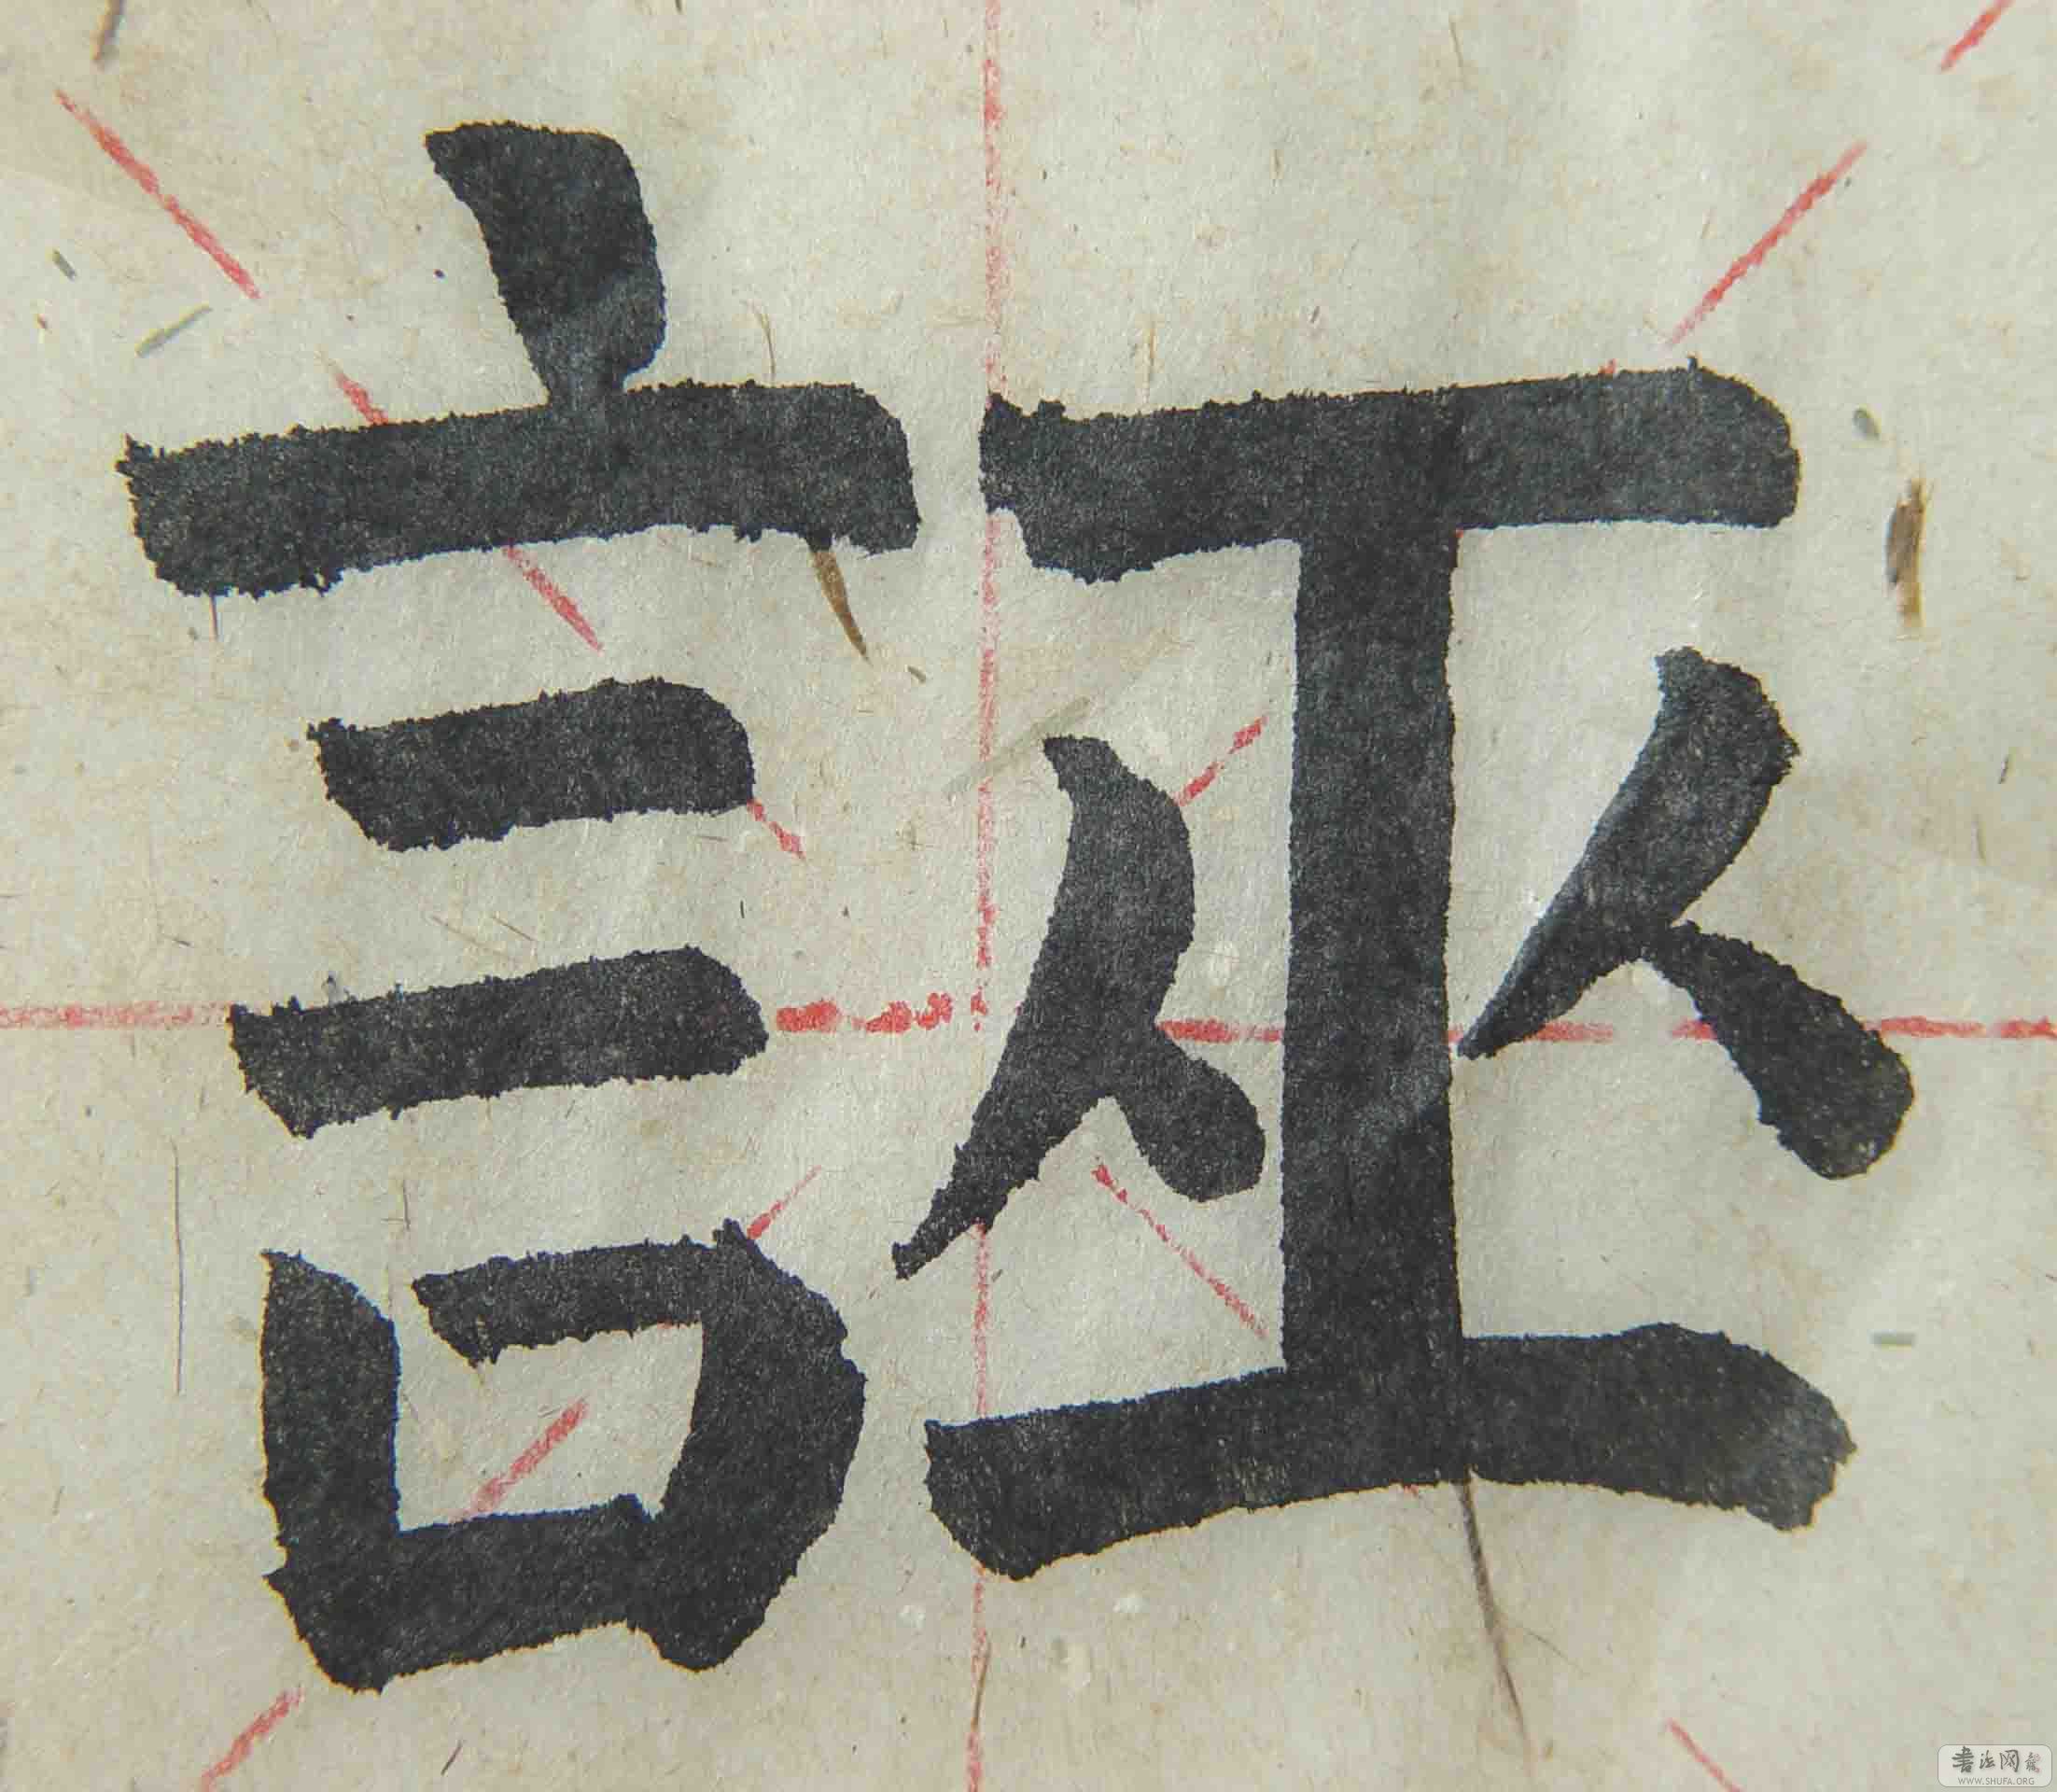 誣
書法网
WWW.SHUFA.ORG